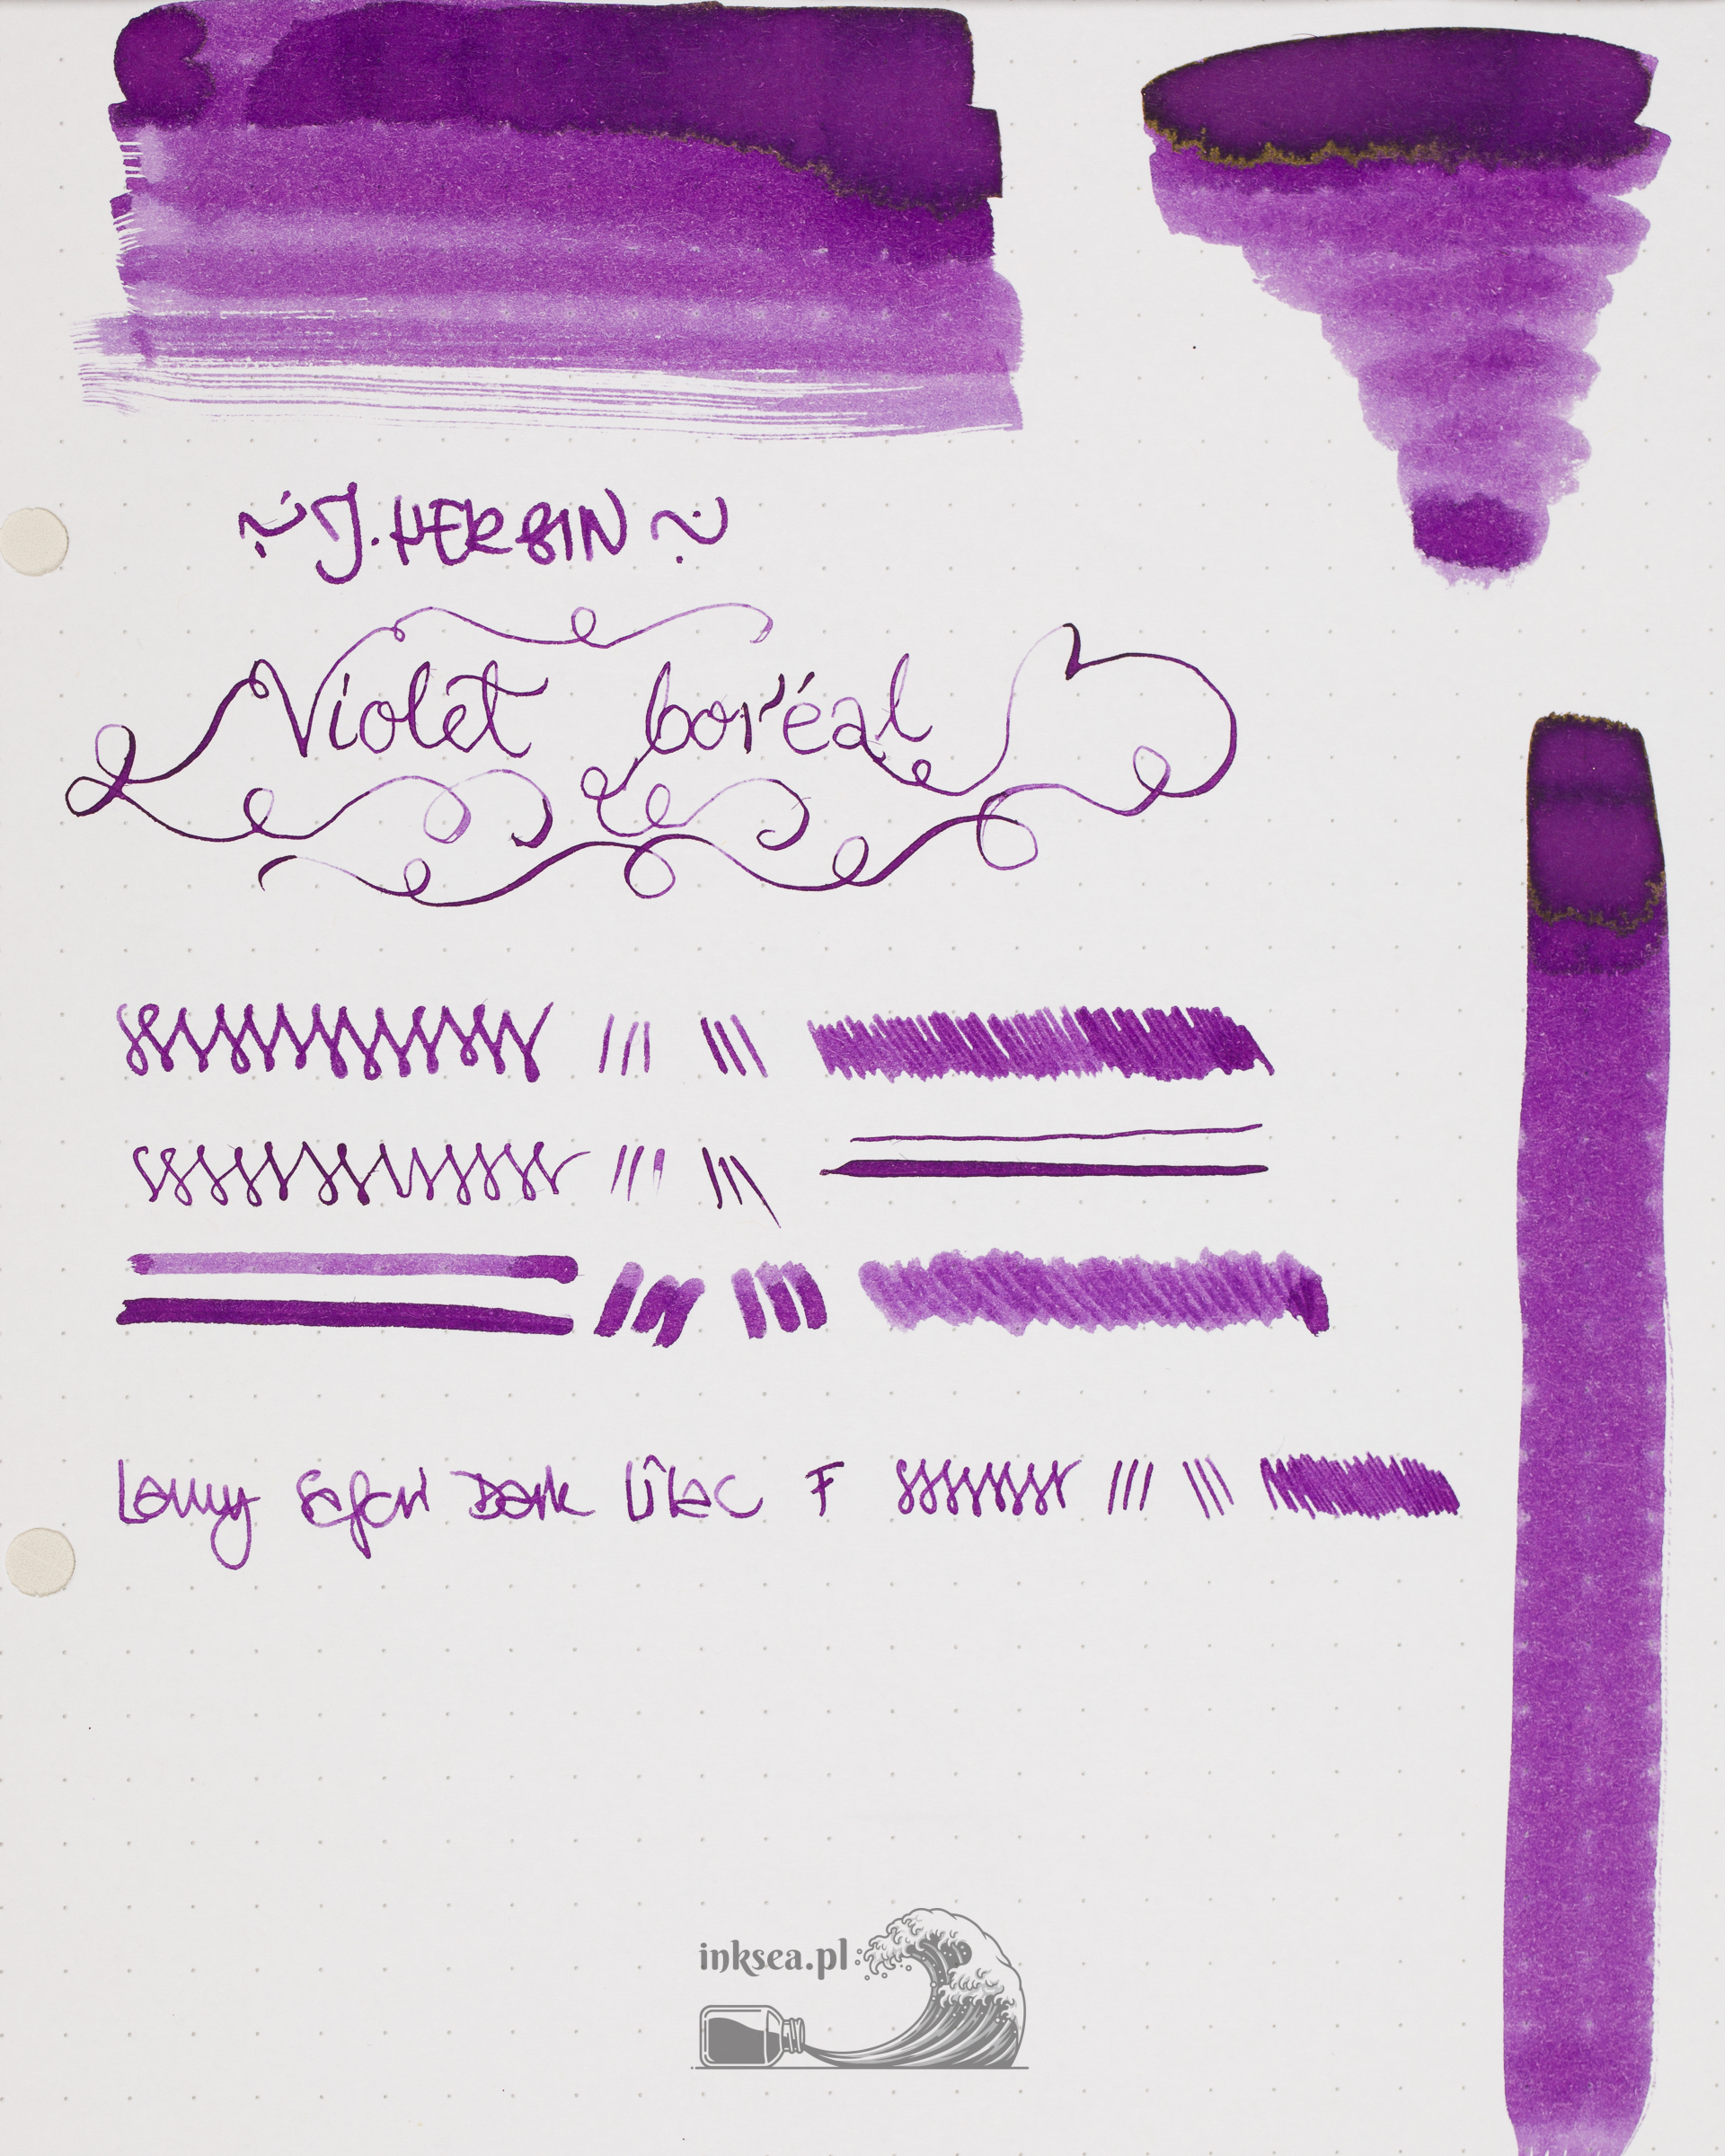 ~ J. HERBIN ~
Violet boréal
Lamy Safari Dark Lilac F
inksea.pl